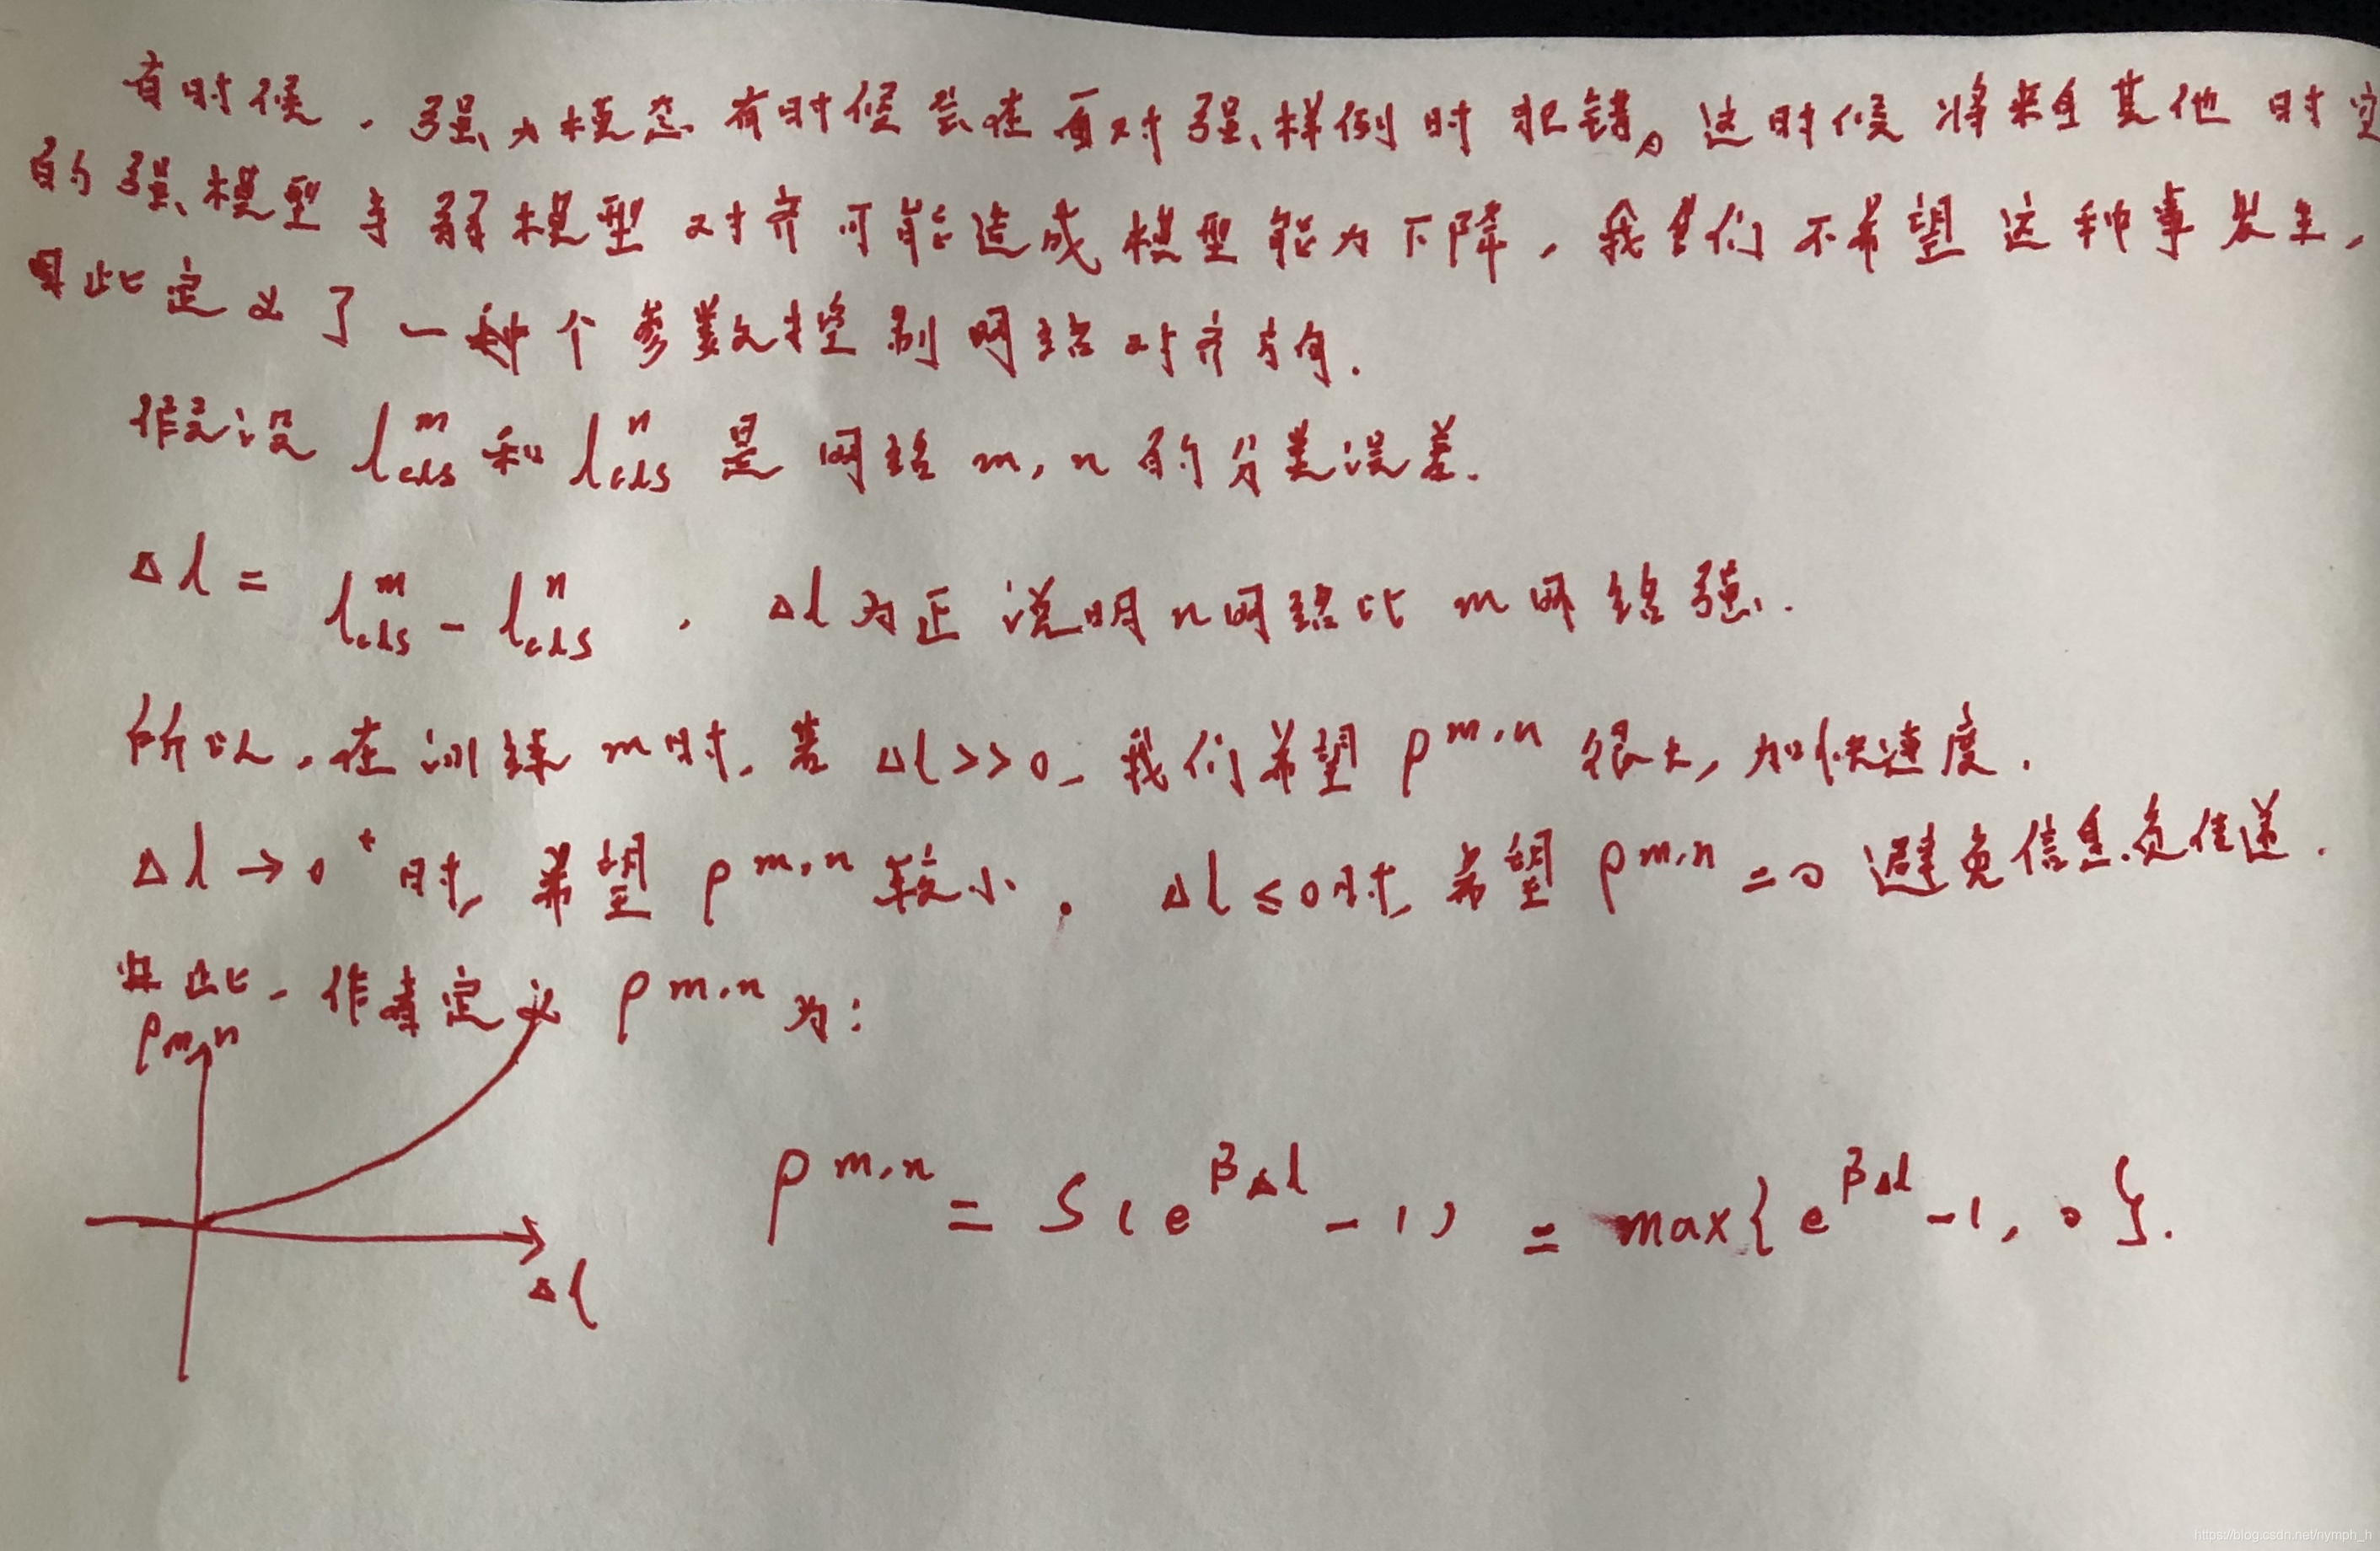 有时候，强大模态有时候会在面对强样例时犯错。这时候将来自其他时空
的强模型与弱模型对齐可能造成模型能力下降，我们不希望这种事发生，
因此定义了一个参数控制网络对齐方向.
假设 l_cls^m 和 l_cls^n 是网络 m, n 的分类误差.
Δl = l_cls^m - l_cls^n . Δl为正说明n网络比m网络强.
所以，在训练m时，若 Δl>>0，我们希望 ρ^m,n 很大，加快速度.
Δl→0^+时，希望 ρ^m,n 较小. Δl≤0时，希望 ρ^m,n =0 避免信息负传递.
因此，作者定义 ρ^m,n 为:
ρ^m,n
ρ^m,n = S(e^βΔl - 1) = max{e^βΔl - 1, 0}.
Δl
https://blog.csdn.net/nymph_h